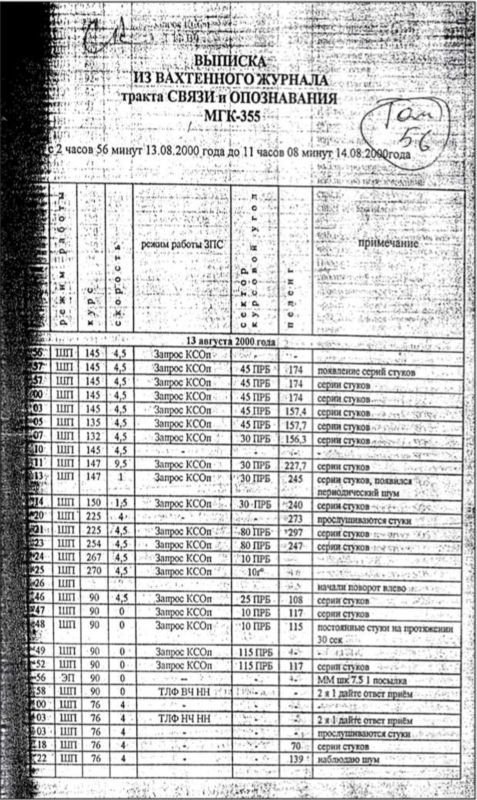 ВЫПИСКА
ИЗ ВАХТЕННОГО ЖУРНАЛА
тракта СВЯЗИ и ОПОЗНАВАНИЯ
МГК-355
Том
56
с 2 часов 56 минут 13.08.2000 года до 11 часов 08 минут 14.08.2000года
режим работы курс скорость режим работы ЗПС сектор курсовой угол пеленг примечание
13 августа 2000 года
56 ШП 145 4,5 Запрос КСОп - - -
57 ШП 145 4,5 Запрос КСОп 45 ПРБ 174 появление серий стуков
57 ШП 145 4,5 Запрос КСОп 45 ПРБ 174 серии стуков
00 ШП 145 4,5 Запрос КСОп 45 ПРБ 174 серии стуков
03 ШП 145 4,5 Запрос КСОп 45 ПРБ 157,4 серии стуков
05 ШП 135 4,5 Запрос КСОп 45 ПРБ 157,7 серии стуков
07 ШП 132 4,5 Запрос КСОп 30 ПРБ 156,3 серии стуков
10 ШП 145 4,5 - - - -
11 ШП 147 9,5 Запрос КСОп 30 ПРБ 227,7 серии стуков
13 ШП 147 1 Запрос КСОп 30 ПРБ 245 серии стуков, появился
периодический шум
14 ШП 150 1,5 Запрос КСОп 30 ПРБ 240 серии стуков
20 ШП 225 4 - - 273 прослушиваются стуки
21 ШП 225 4,5 Запрос КСОп 80 ПРБ 297 серии стуков
23 ШП 254 4,5 Запрос КСОп 80 ПРБ 247 серии стуков
24 ШП 267 4,5 Запрос КСОп 10 ПРБ
25 ШП 270 4,5 Запрос КСОп
26 ШП начали поворот влево
46 ШП 90 4,5 Запрос КСОп 25 ПРБ 108 серии стуков
47 ШП 90 0 Запрос КСОп 10 ПРБ 117 серии стуков
48 ШП 90 0 Запрос КСОп 10 ПРБ 115 постоянные стуки на протяжении
30 сек
49 ШП 90 0 Запрос КСОп 115 ПРБ - -
52 ШП 90 0 Запрос КСОп 115 ПРБ 117 серии стуков
56 ЭП 90 0 -- - - ММ шк 7.5 1 посылка
58 ШП 90 0 ТЛФ ВЧ НН - - 2 я 1 дайте ответ приём
00 ШП 76 4 - - -
03 ШП 76 4 ТЛФ НЧ НН - - 2 я 1 дайте ответ приём
03 ШП 76 4 - - - прослушиваются стуки
18 ШП 76 4 - - 70 серии стуков
22 ШП 76 4 139 наблюдаю шум